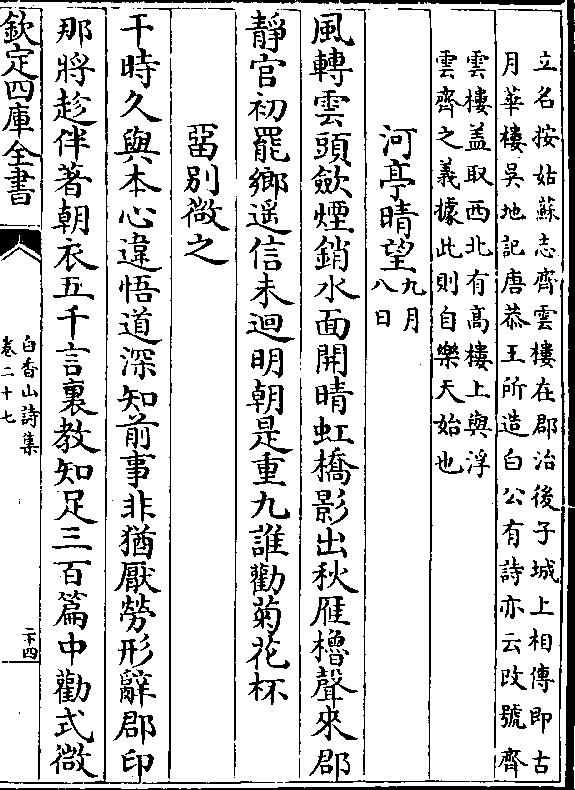 立名按姑蘇志齊雲樓在郡治後子城上相傳即古
月華樓吳地記唐恭王所造白公有詩亦云改號齊
雲樓蓋取西北有高樓上與浮
雲齊之義據此則自樂天始也
河亭晴望九月
八日
風轉雲頭斂煙銷水面開晴虹橋影出秋雁櫓聲來郡
靜官初罷鄉遥信未迴明朝是重九誰勸菊花杯
留别微之
干時久與本心違悟道深知前事非猶厭勞形辭郡印
那將趁伴著朝衣五千言裏教知足三百篇中勸式微
欽定四庫全書
白香山詩集
卷二十七
二十四